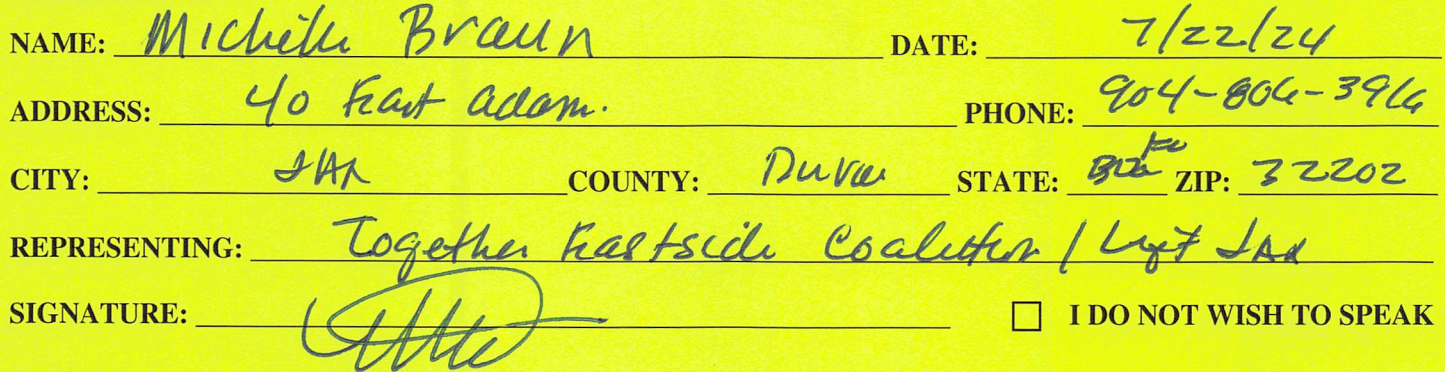 NAME: Michelle Braun DATE: 7/22/24
ADDRESS: 40 East Adam. PHONE: 904-806-3916
CITY: JAX COUNTY: Duval STATE: ZIP: 32202
REPRESENTING: Together Eastside Coalition / Lift JAX
SIGNATURE: ☐ I DO NOT WISH TO SPEAK